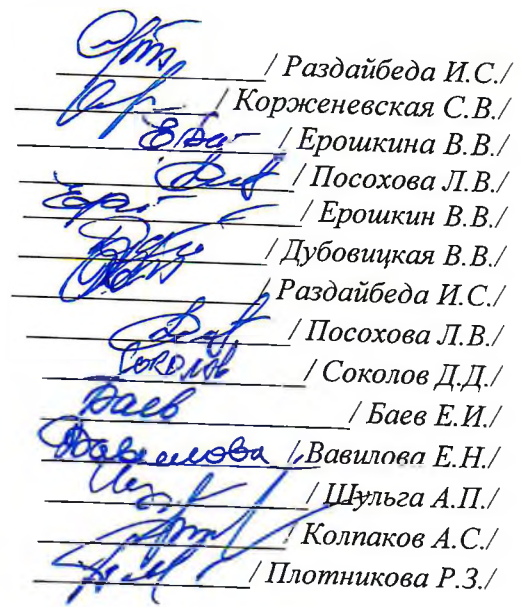 / Раздайбеда И.С./
/ Корженевская С.В./
/ Ерошкина В.В./
/ Посохова Л.В./
/ Ерошкин В.В./
/ Дубовицкая В.В./
/ Раздайбеда И.С./
/ Посохова Л.В./
Соколов / Соколов Д.Д./
Баев / Баев Е.И./
Вавилова / Вавилова Е.Н./
/ Шульга А.П./
/ Колпаков А.С./
/ Плотникова Р.З./